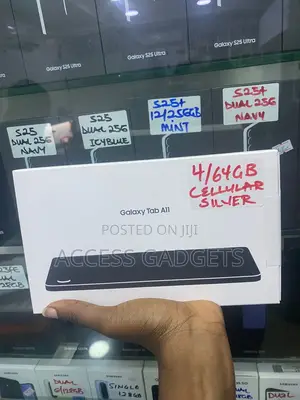 Galaxy S25 Ultra
Galaxy S25 Ultra
Galaxy S25 Ultra
S25
DUAL 256
NAVY
S25
DUAL 256
ICYBLUE
S25+
12/256GB
MINT
S25+
DUAL 256
NAVY
4/64GB
CELLULAR
SILVER
Galaxy Tab A11
POSTED ON JIJI
ACCESS GADGETS
DUAL
6/128GB
SINGLE
128GB
DUAL